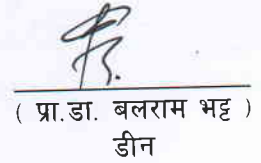 ( प्रा.डा. बलराम भट्ट )
डीन